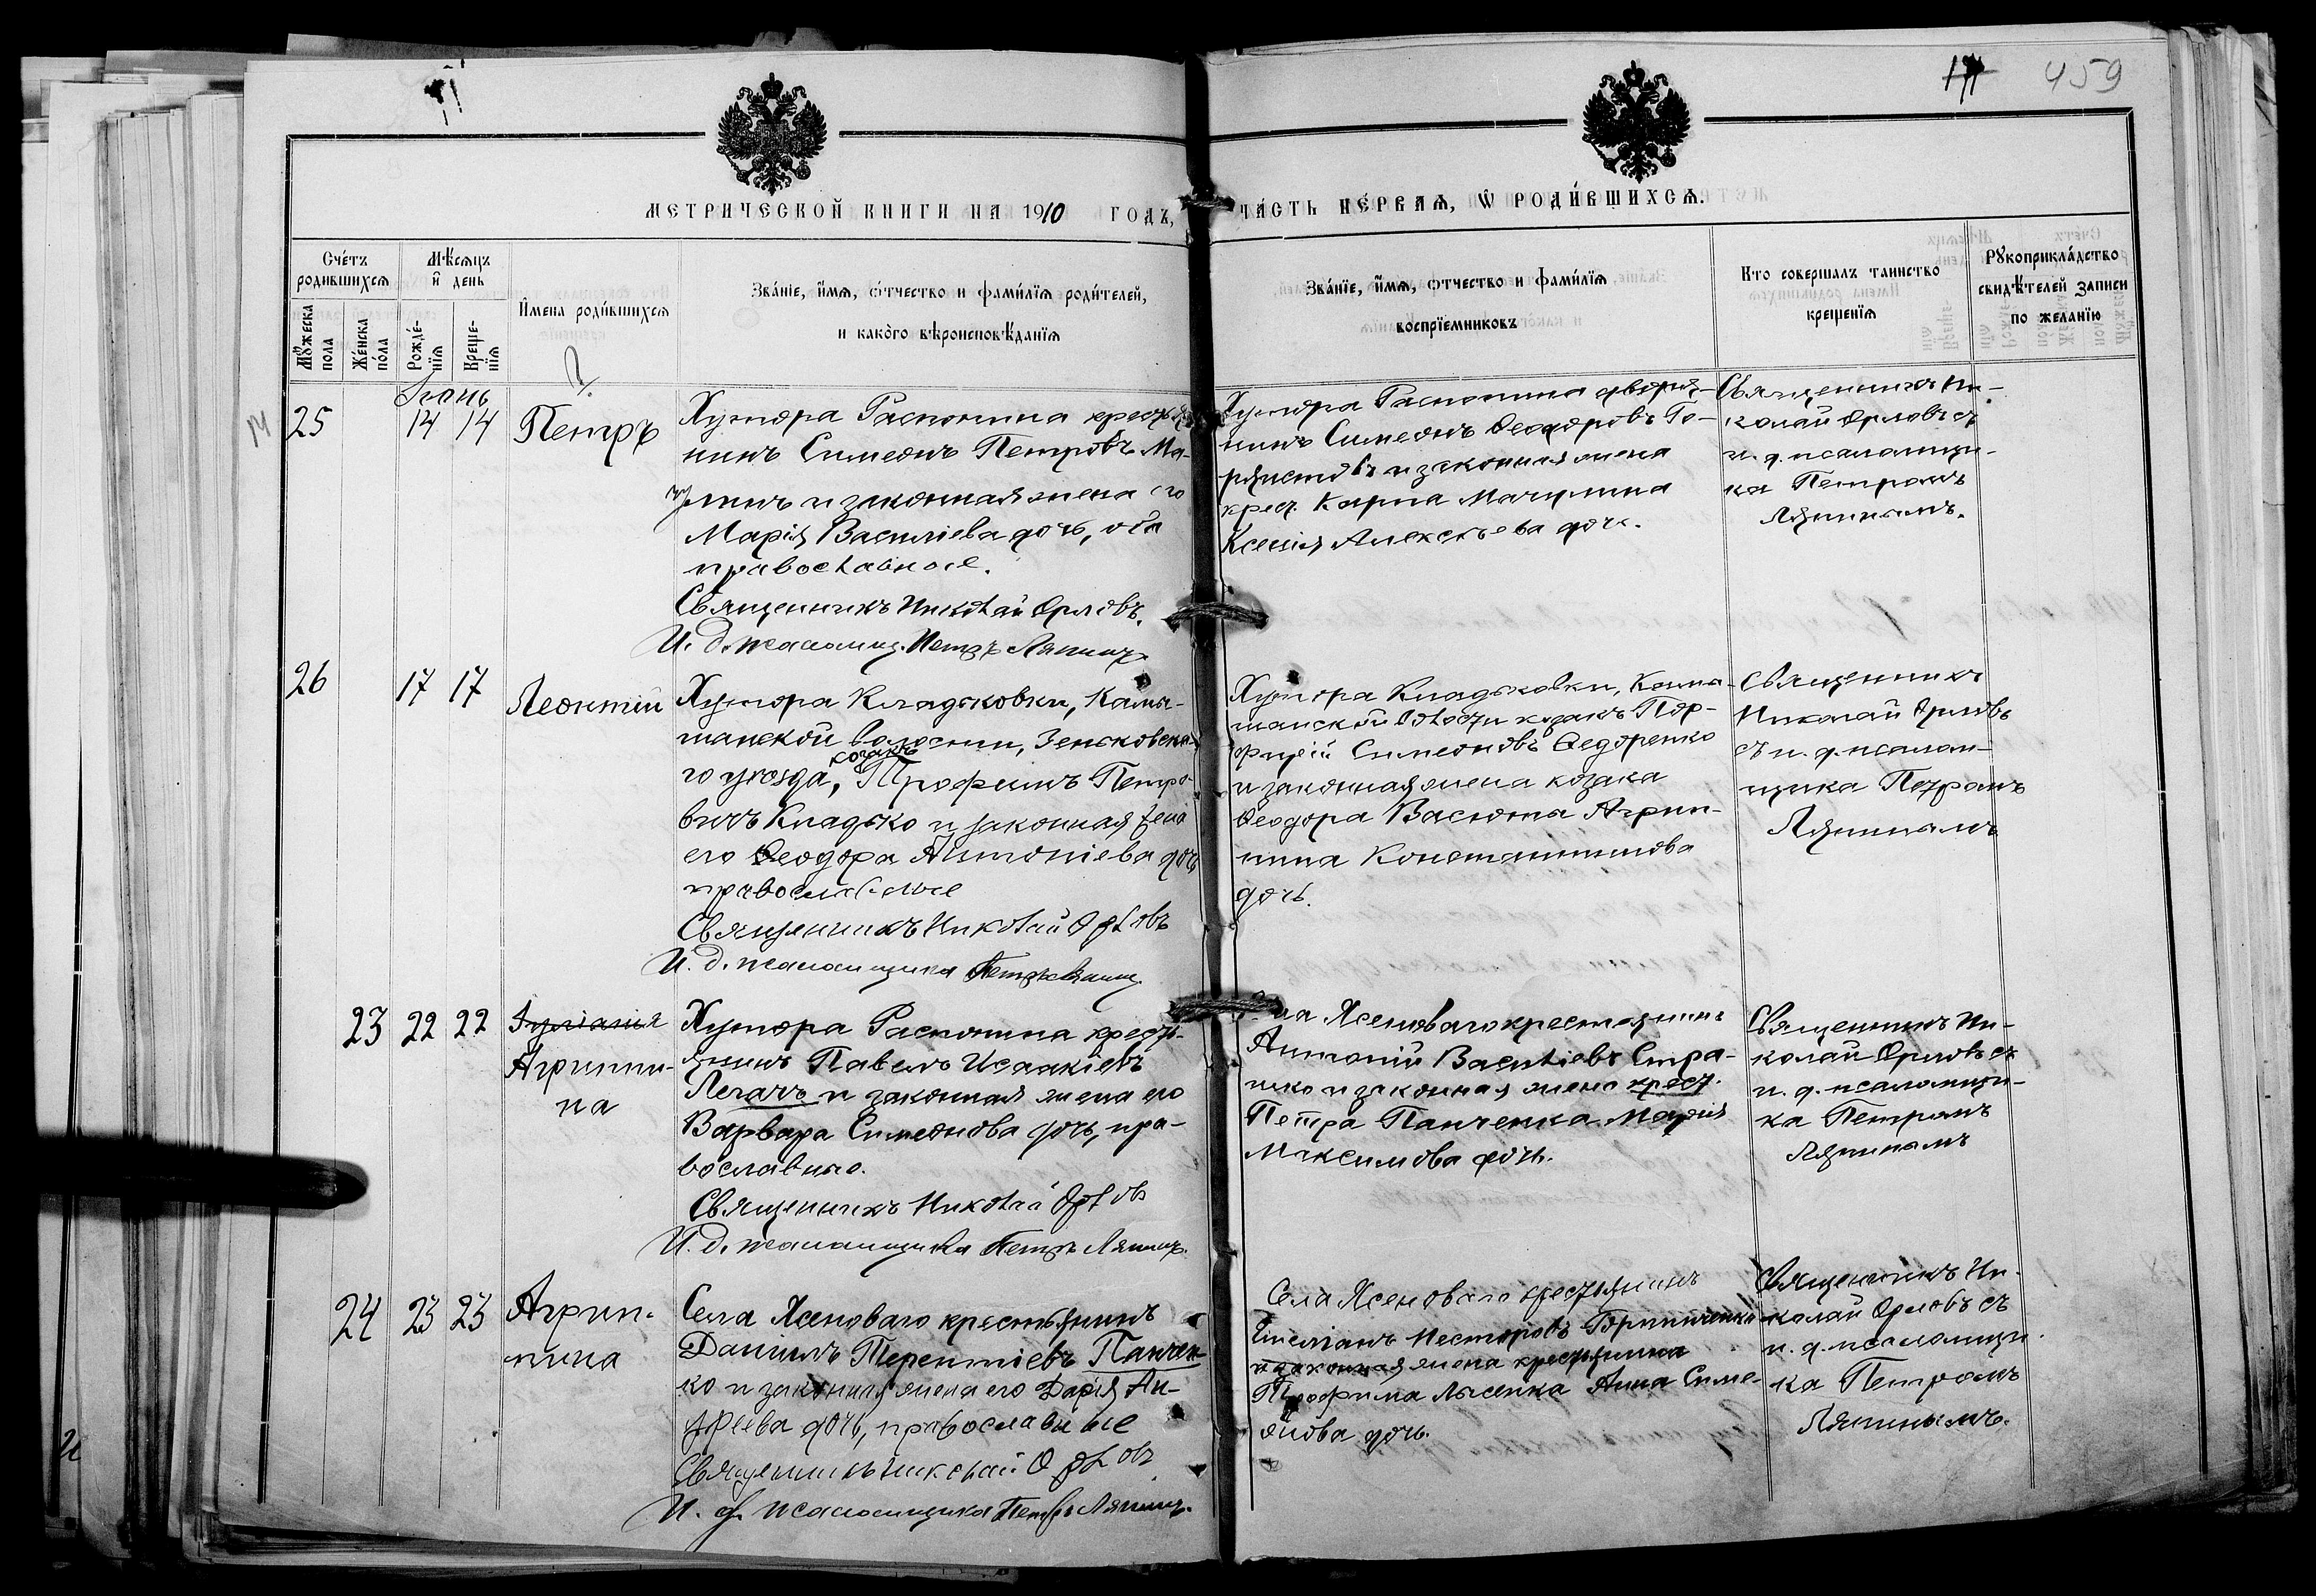 459
МЕТРИЧЕСКОЙ КНИГИ НА 1910 ГОДЪ,
ЧА́СТЬ ПЕ́РВАѦ, Ѡ҆ РОДИ́ВШИХСѦ.
Счётъ родившихся
Мѣсяцъ и день
Имена роди́вшихся
Зва́ніе, и́мя, о́тчество и фами́лїя роди́телей,
и како́го вѣроисповѣ́данїя
Мужеска пола
Же́нска по́ла
Рожде́нїя
Креще́нїя
Зва́нїе, и́мя, отчество и фами́лїя
воспрїемниковъ
Кто совершалъ таинство
крещенїя
Рукоприкла́дство
свидѣтелей записи
по желанїю
Іюнь
25 14 14 Петръ
Хутора Распопина крестья
нинъ Симеонъ Петровъ Ма-
линъ и законная жена его
Марія Василіева дочь, оба
православные.
Священникъ Николай Орловъ.
И. д. псаломщ. Петръ Ляпинъ
Хутора Распопина дворя-
нинъ Симеонъ Ѳеодоровъ
и законная жена
крест. Карпа Мачулина
Ксенія Алексѣева дочь.
Священникъ Ни-
колай Орловъ съ
и. д. псаломщи-
ка Петромъ
Ляпинымъ.
26 17 17 Леонтій
Хутора Кладьковки, Камы-
шанской волости, Зеньковска-
го уѣзда, козакъ Трофимъ Петро-
вичъ Кладько и законная жена
его Ѳеодора Антоніева дочь
православные
Священникъ Николай Орловъ
И. д. псаломщика Петръ Ляпинъ
Хутора Кладьковки, Камы-
шанской волости козакъ Пор-
фирій Симеоновъ Ѳедоренко
и законная жена козака
Ѳеодора Васюта Агрип-
пина Константинова
дочь.
Священникъ
Николай Орловъ
съ и. д. псалом-
щика Петромъ
Ляпинымъ
23 22 22 Іуліанія
Агриппи-
на
Хутора Распопина кресть-
янинъ Павелъ Исаакіевъ
Легачъ и законная жена его
Варвара Симеонова дочь, пра-
вославные.
Священникъ Николай Орловъ
И. д. псаломщика Петръ Ляпинъ.
Села Ясеноваго крестьянинъ
Антоній Василіевъ Стра-
шко и законная жена крест.
Петра Панченка Марія
Максимова дочь.
Священникъ Ни-
колай Орловъ съ
и. д. псаломщи-
ка Петромъ
Ляпинымъ
24 23 23 Агрип-
пина
Села Ясеноваго крестьянинъ
Даніилъ Терентіевъ Панчен-
ко и законная жена его Дарія Ан-
дреева дочь, православные
Священникъ Николай Орловъ
И. д. псаломщика Петръ Ляпинъ.
Села Ясеноваго крестьянинъ
Емеліанъ Несторовъ
и законная жена крестьянина
Трофима Лысенка Анна Симе-
онова дочь.
Священникъ Ни-
колай Орловъ съ
и. д. псаломщи-
ка Петромъ
Ляпинымъ.